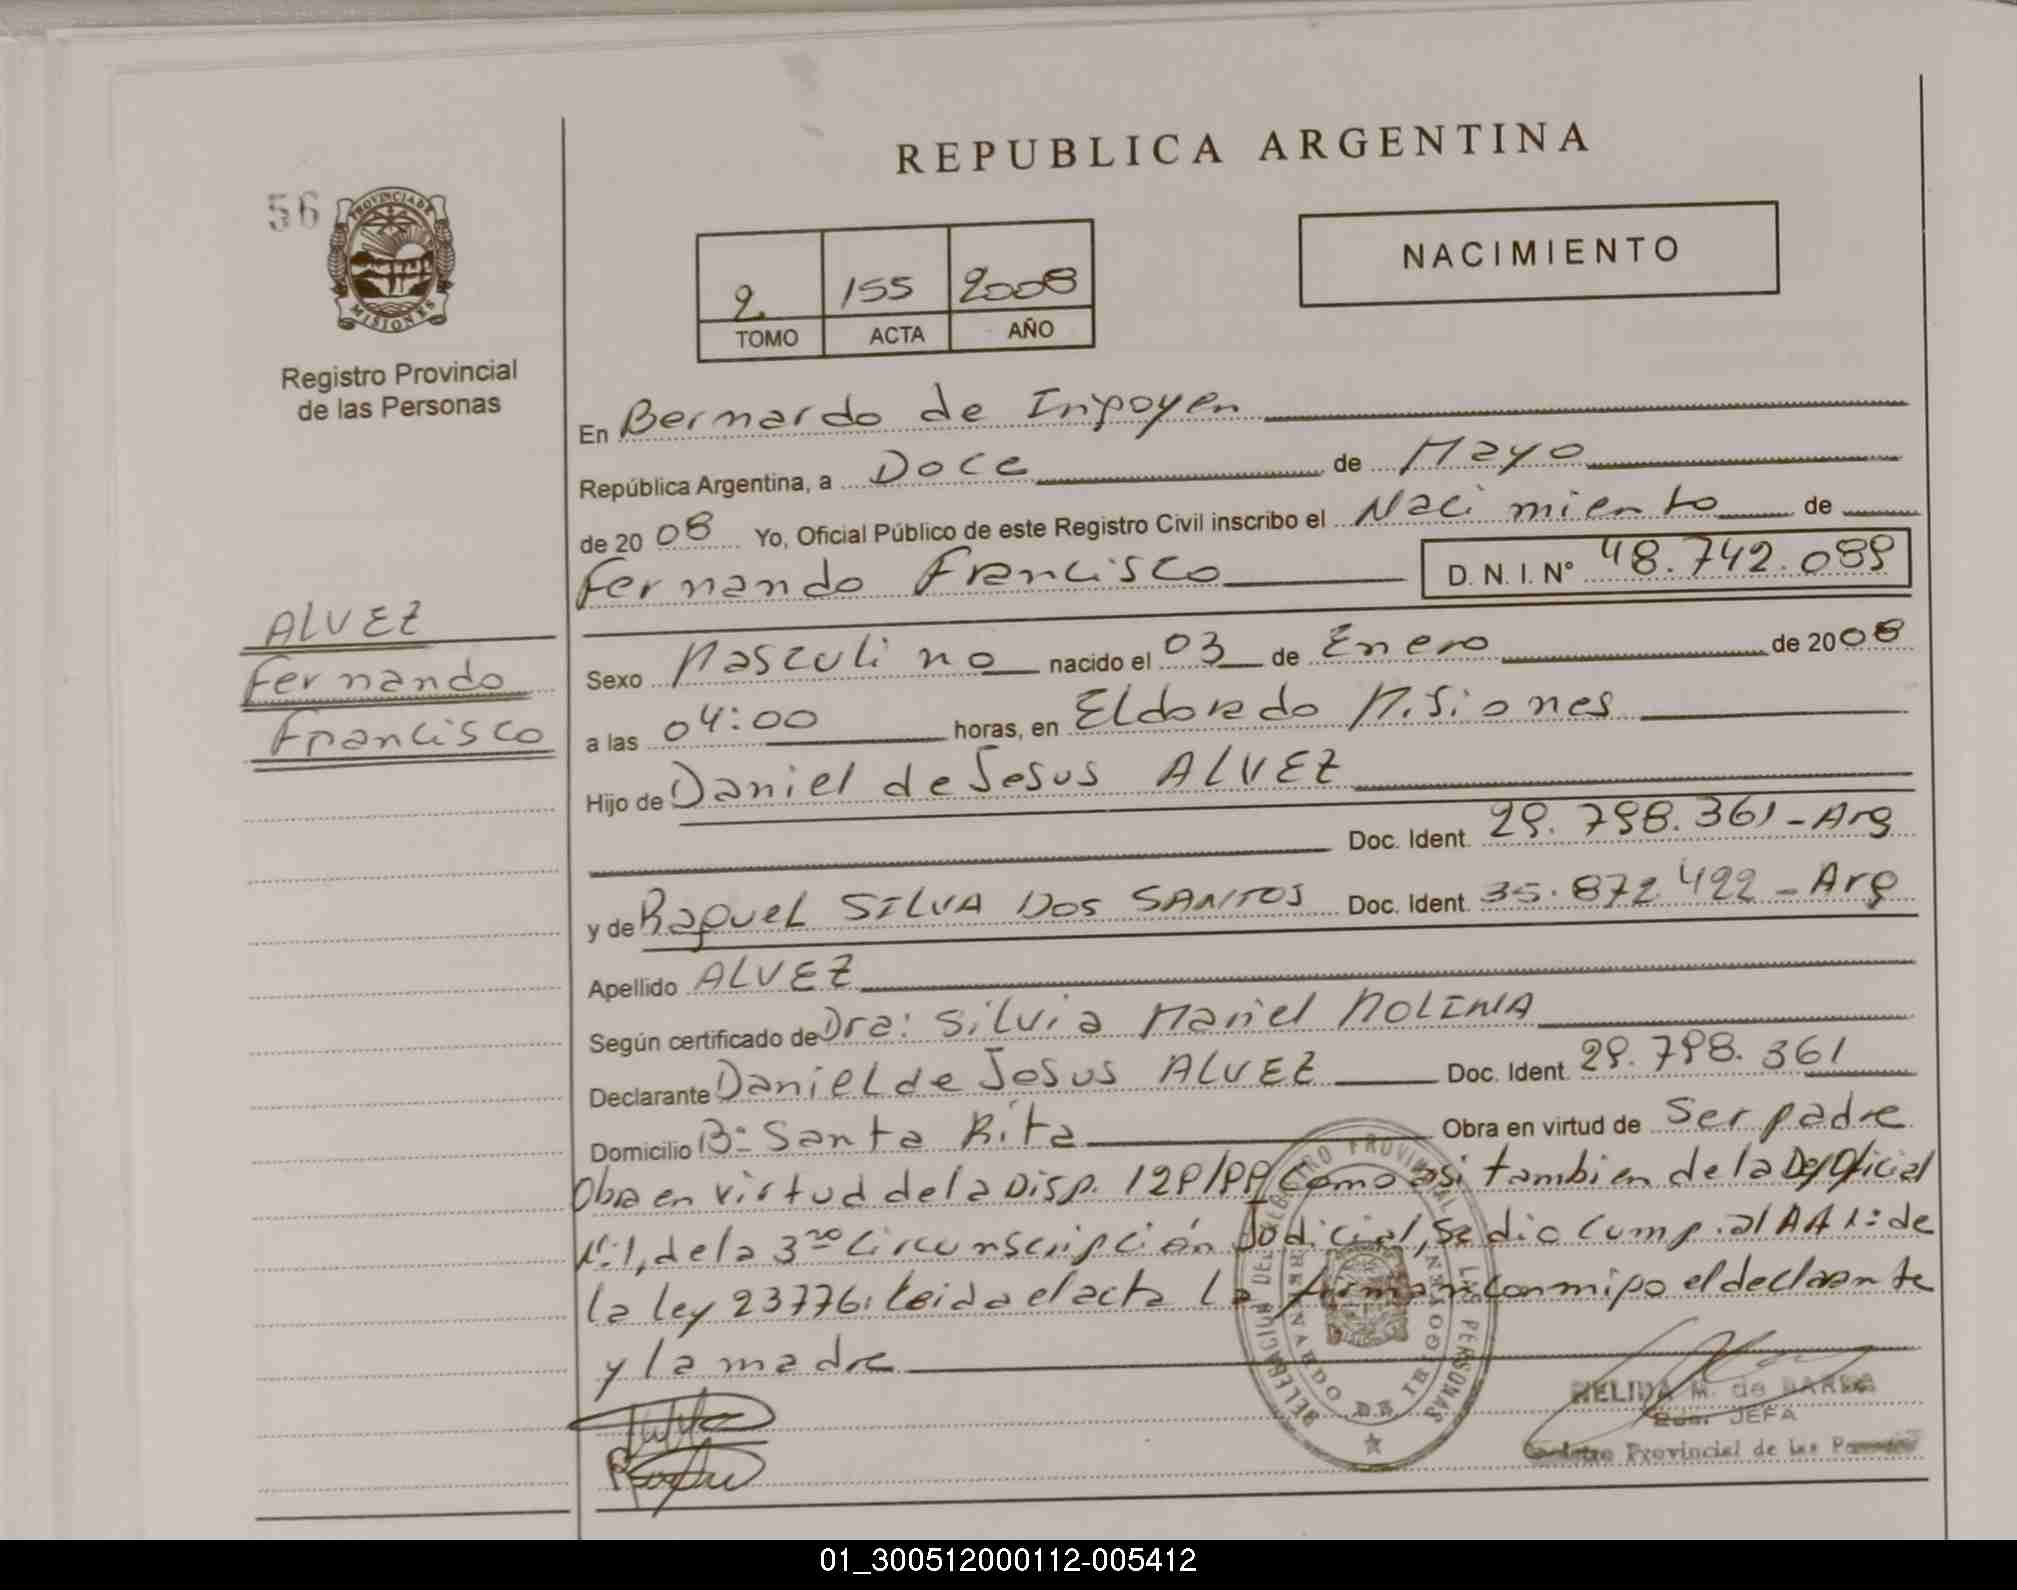 REPUBLICA ARGENTINA
56
PROVINCIA DE
MISIONES
Registro Provincial
de las Personas
NACIMIENTO
2 155 2008
TOMO ACTA AÑO
En Bernardo de Irigoyen
República Argentina, a Doce de Mayo
de 2008 Yo, Oficial Público de este Registro Civil inscribo el Nacimiento de
Fernando Francisco D. N. I. N° 48.742.089
ALVEZ
Fernando
Francisco
Sexo Masculino nacido el 03 de Enero de 2008
a las 04:00 horas, en Eldorado Misiones
Hijo de Daniel de Jesus ALVEZ
Doc. Ident. 29.798.361 - Arg
y de Raquel SILVA DOS SANTOS Doc. Ident. 35.872 422 - Arg
Apellido ALVEZ
Según certificado de Dra: Silvia Mariel MOLINA
Declarante Daniel de Jesus ALVEZ Doc. Ident. 29.798.361
Domicilio B° Santa Rita Obra en virtud de Ser padre
Obra en virtud de la Disp. como asi tambien de la Def Oficial
N°1, de la 3ra Circunscripción Judicial, se dio cump. al A 1: de
la ley 23776. Leida el acta la firman conmigo el declarante
y la madre
DELEGACION DEL REGISTRO PROVINCIAL DE LAS PERSONAS
BERNARDO DE IRIGOYEN
NELIDA M. de
JEFA
Provincial de las
01_300512000112-005412